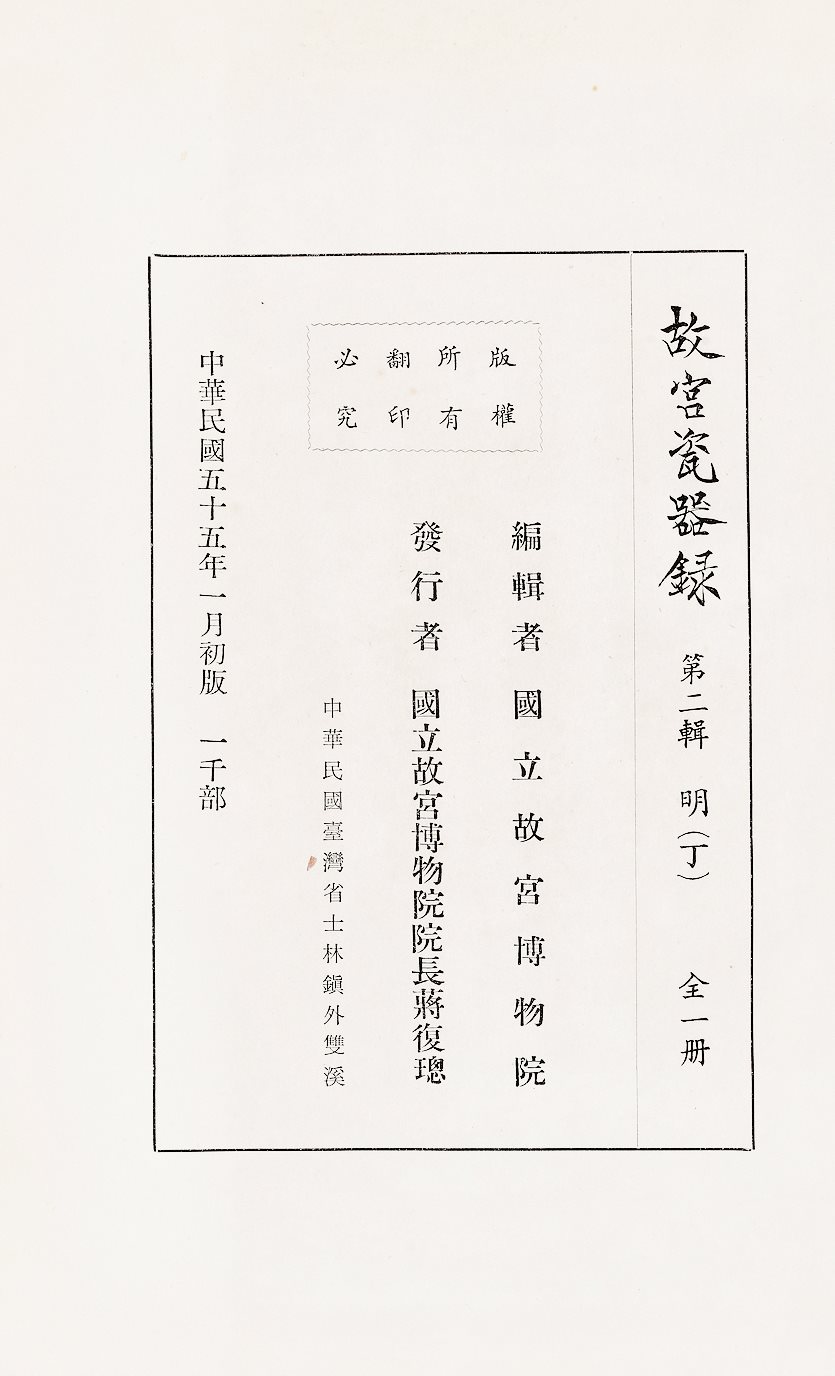 故宮瓷器録 第二輯 明(丁) 全一册
編輯者 國立故宮博物院
版權
所有
翻印
必究
發行者 國立故宮博物院院長蔣復璁
中華民國臺灣省士林鎭外雙溪
中華民國五十五年一月初版 一千部